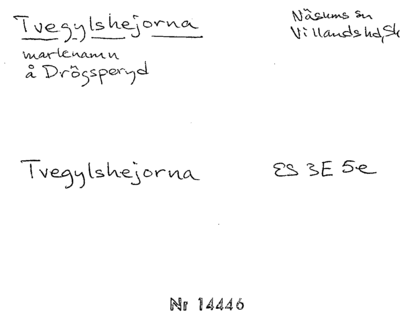 Tvegylshejorna
Näsums sn
Villands hd, Sk
markenamn
å Drögsperyd
Tvegylshejorna
ES 3E 5e
Nr 14446